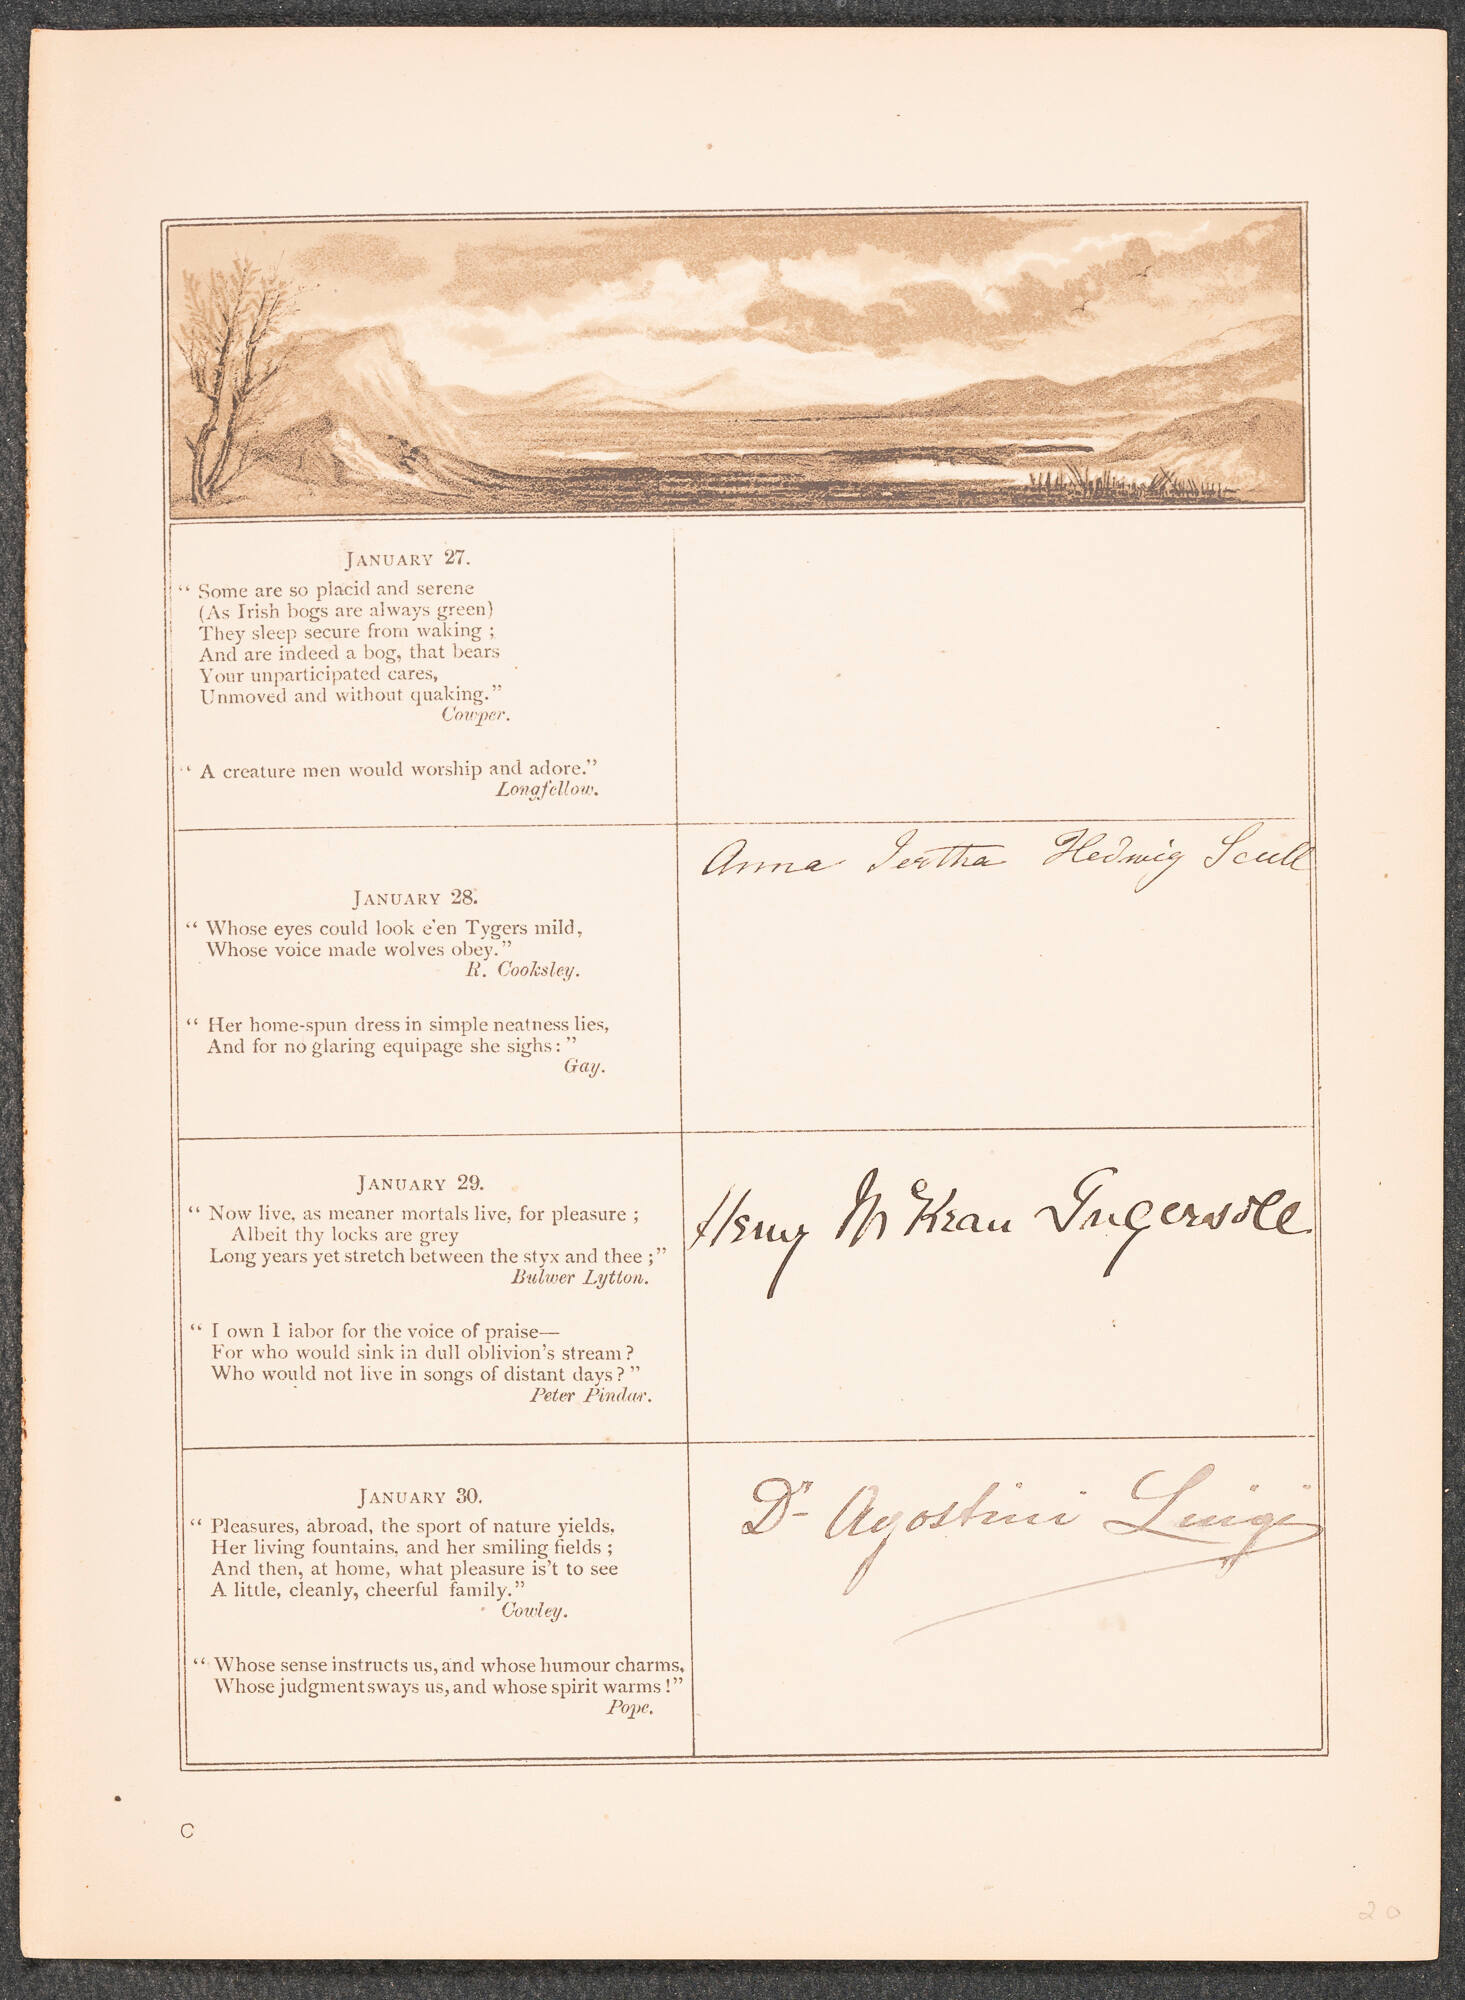 JANUARY 27.
“ Some are so placid and serene
(As Irish bogs are always green)
They sleep secure from waking ;
And are indeed a bog, that bears
Your unparticipated cares,
Unmoved and without quaking.”
Cowper.
“ A creature men would worship and adore.”
Longfellow.
Anna Jertha Hedwig Scull
JANUARY 28.
“ Whose eyes could look e'en Tygers mild,
Whose voice made wolves obey.”
R. Cooksley.
“ Her home-spun dress in simple neatness lies,
And for no glaring equipage she sighs: ”
Gay.
JANUARY 29.
“ Now live, as meaner mortals live, for pleasure ;
Albeit thy locks are grey
Long years yet stretch between the styx and thee ;”
Bulwer Lytton.
Henry McKean Ingersoll
“ I own I iabor for the voice of praise—
For who would sink in dull oblivion's stream?
Who would not live in songs of distant days? ”
Peter Pindar.
JANUARY 30.
“ Pleasures, abroad, the sport of nature yields,
Her living fountains, and her smiling fields ;
And then, at home, what pleasure is't to see
A little, cleanly, cheerful family.”
Cowley.
Dr Agostini Luigi
“ Whose sense instructs us, and whose humour charms,
Whose judgment sways us, and whose spirit warms !”
Pope.
C
20